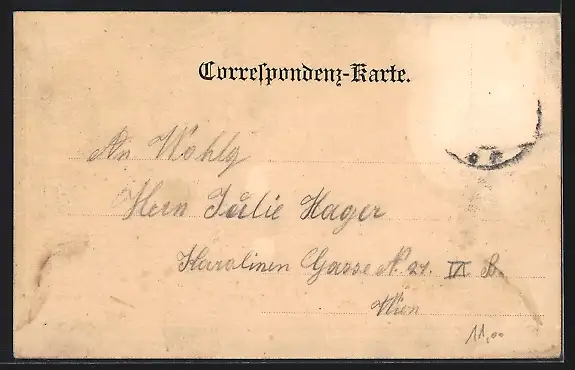 Correspondenz-Karte.
An Wohlg
Herrn Julie Hager
Karolinen Gasse N. 27. IX B.
Wien
11,00